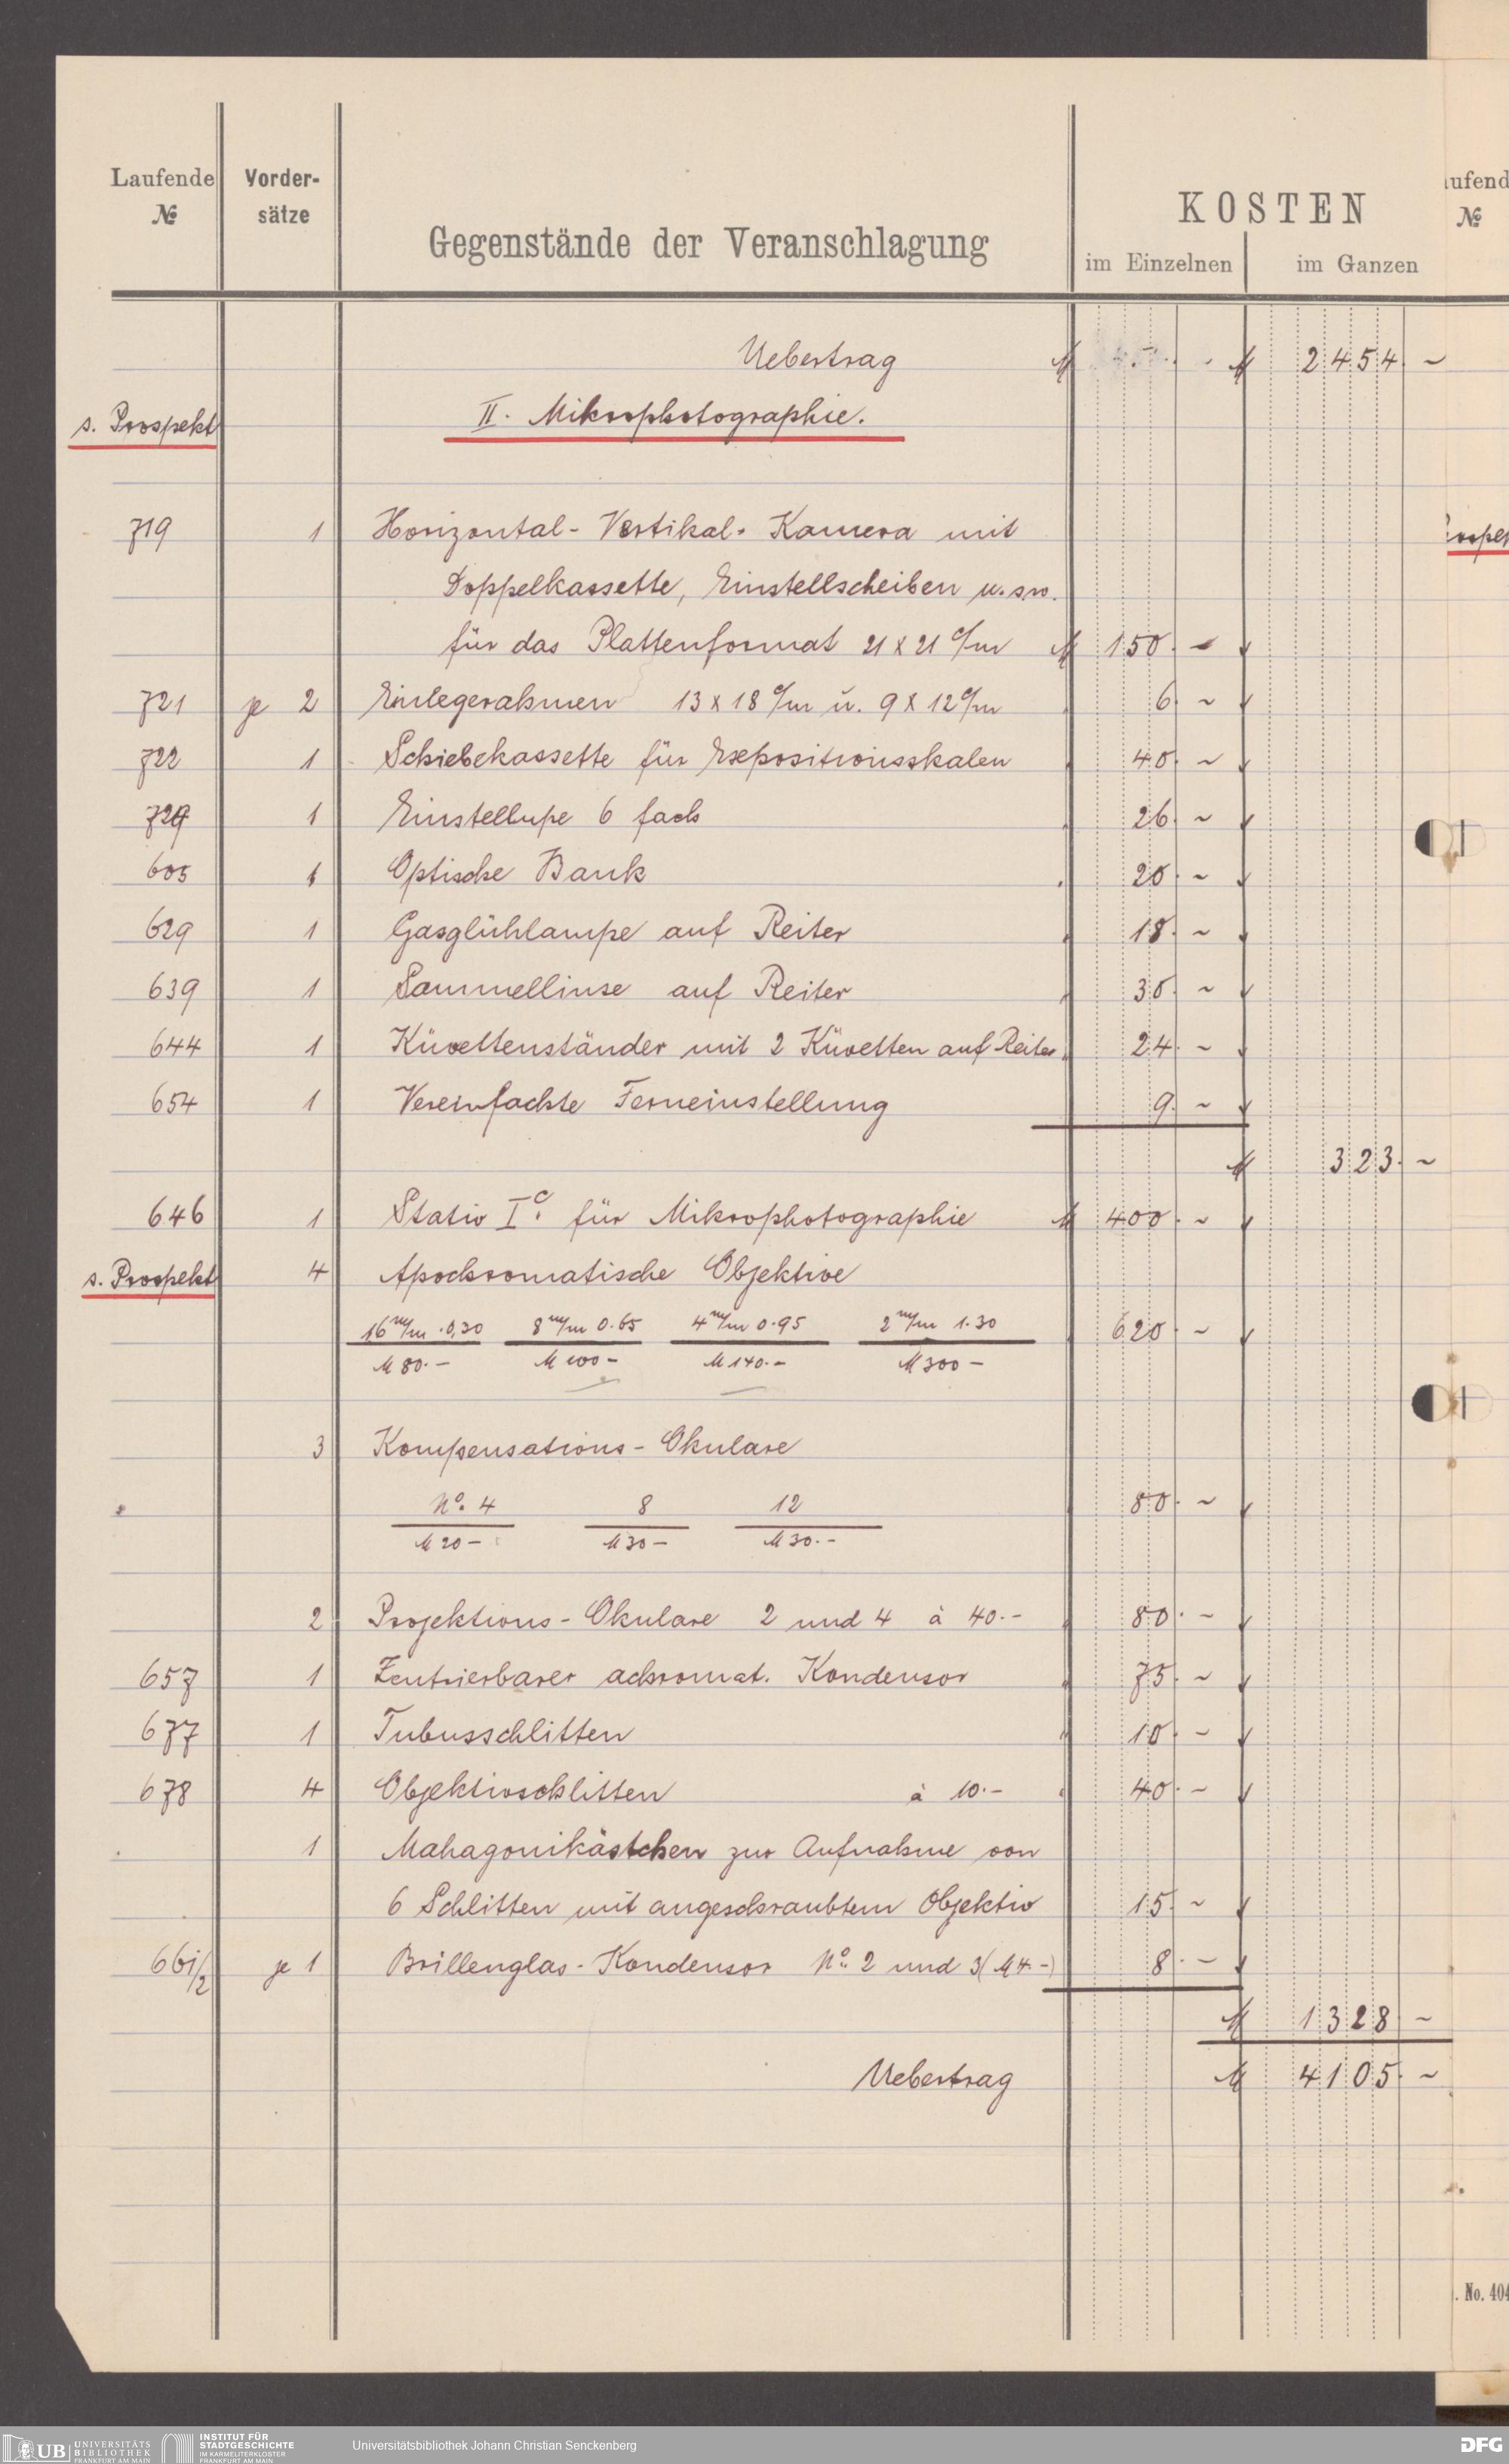 Laufende Vorder-
№ sätze
Gegenstände der Veranschlagung
KOSTEN
im Einzelnen im Ganzen
ufend
№
Uebertrag M M 2454 ~
s. Prospekt II. Mikrophotographie.
719 1 Horizontal- Vertikal- Kamera mit
Doppelkassette, Einstellscheiben u.s.w.
für das Plattenformat 21 x 21 c/m M 150. -
721 je 2 Einlegerahmen 13 x 18 c/m u. 9 x 12 c/m 6. ~
722 1 Schiebekassette für Expositionsskalen 40. ~
729 1 Einstellupe 6 fach 26. ~
605 1 Optische Bank 20. ~
629 1 Gasglühlampe auf Reiter 18. ~
639 1 Sammellinse auf Reiter 30. ~
644 1 Küvettenständer mit 2 Küvetten auf Reiter 24. ~
654 1 Vereinfachte Ferneinstellung 9. ~
M 323. ~
646 1 Stativ I c. für Mikrophotographie M 400. ~
s. Prospekt 4 Apochromatische Objektive
16 m/m 0,30 8 m/m 0.65 4 m/m 0.95 2 m/m 1.30 620. ~
M 80.- M 100- M 140.- M 300-
3 Kompensations-Okulare
No. 4 8 12 80. ~
M 20- M 30- M 30.-
2 Projektions-Okulare 2 und 4 à 40.- 80. -
657 1 Zentrierbarer achromat. Kondensor 75. ~
677 1 Tubusschlitten 10. -
678 4 Objektivschlitten à 10.- 40. -
1 Mahagonikästchen zur Aufnahme von
6 Schlitten mit angeschraubtem Objektiv 15. ~
661/2 je 1 Brillenglas-Kondensor No. 2 und 3 (M 4.-) 8. -
M 1328 ~
Uebertrag M 4105. ~
. No. 404
UB UNIVERSITÄTS
BIBLIOTHEK
FRANKFURT AM MAIN
INSTITUT FÜR
STADTGESCHICHTE
IM KARMELITERKLOSTER
FRANKFURT AM MAIN
Universitätsbibliothek Johann Christian Senckenberg
DFG